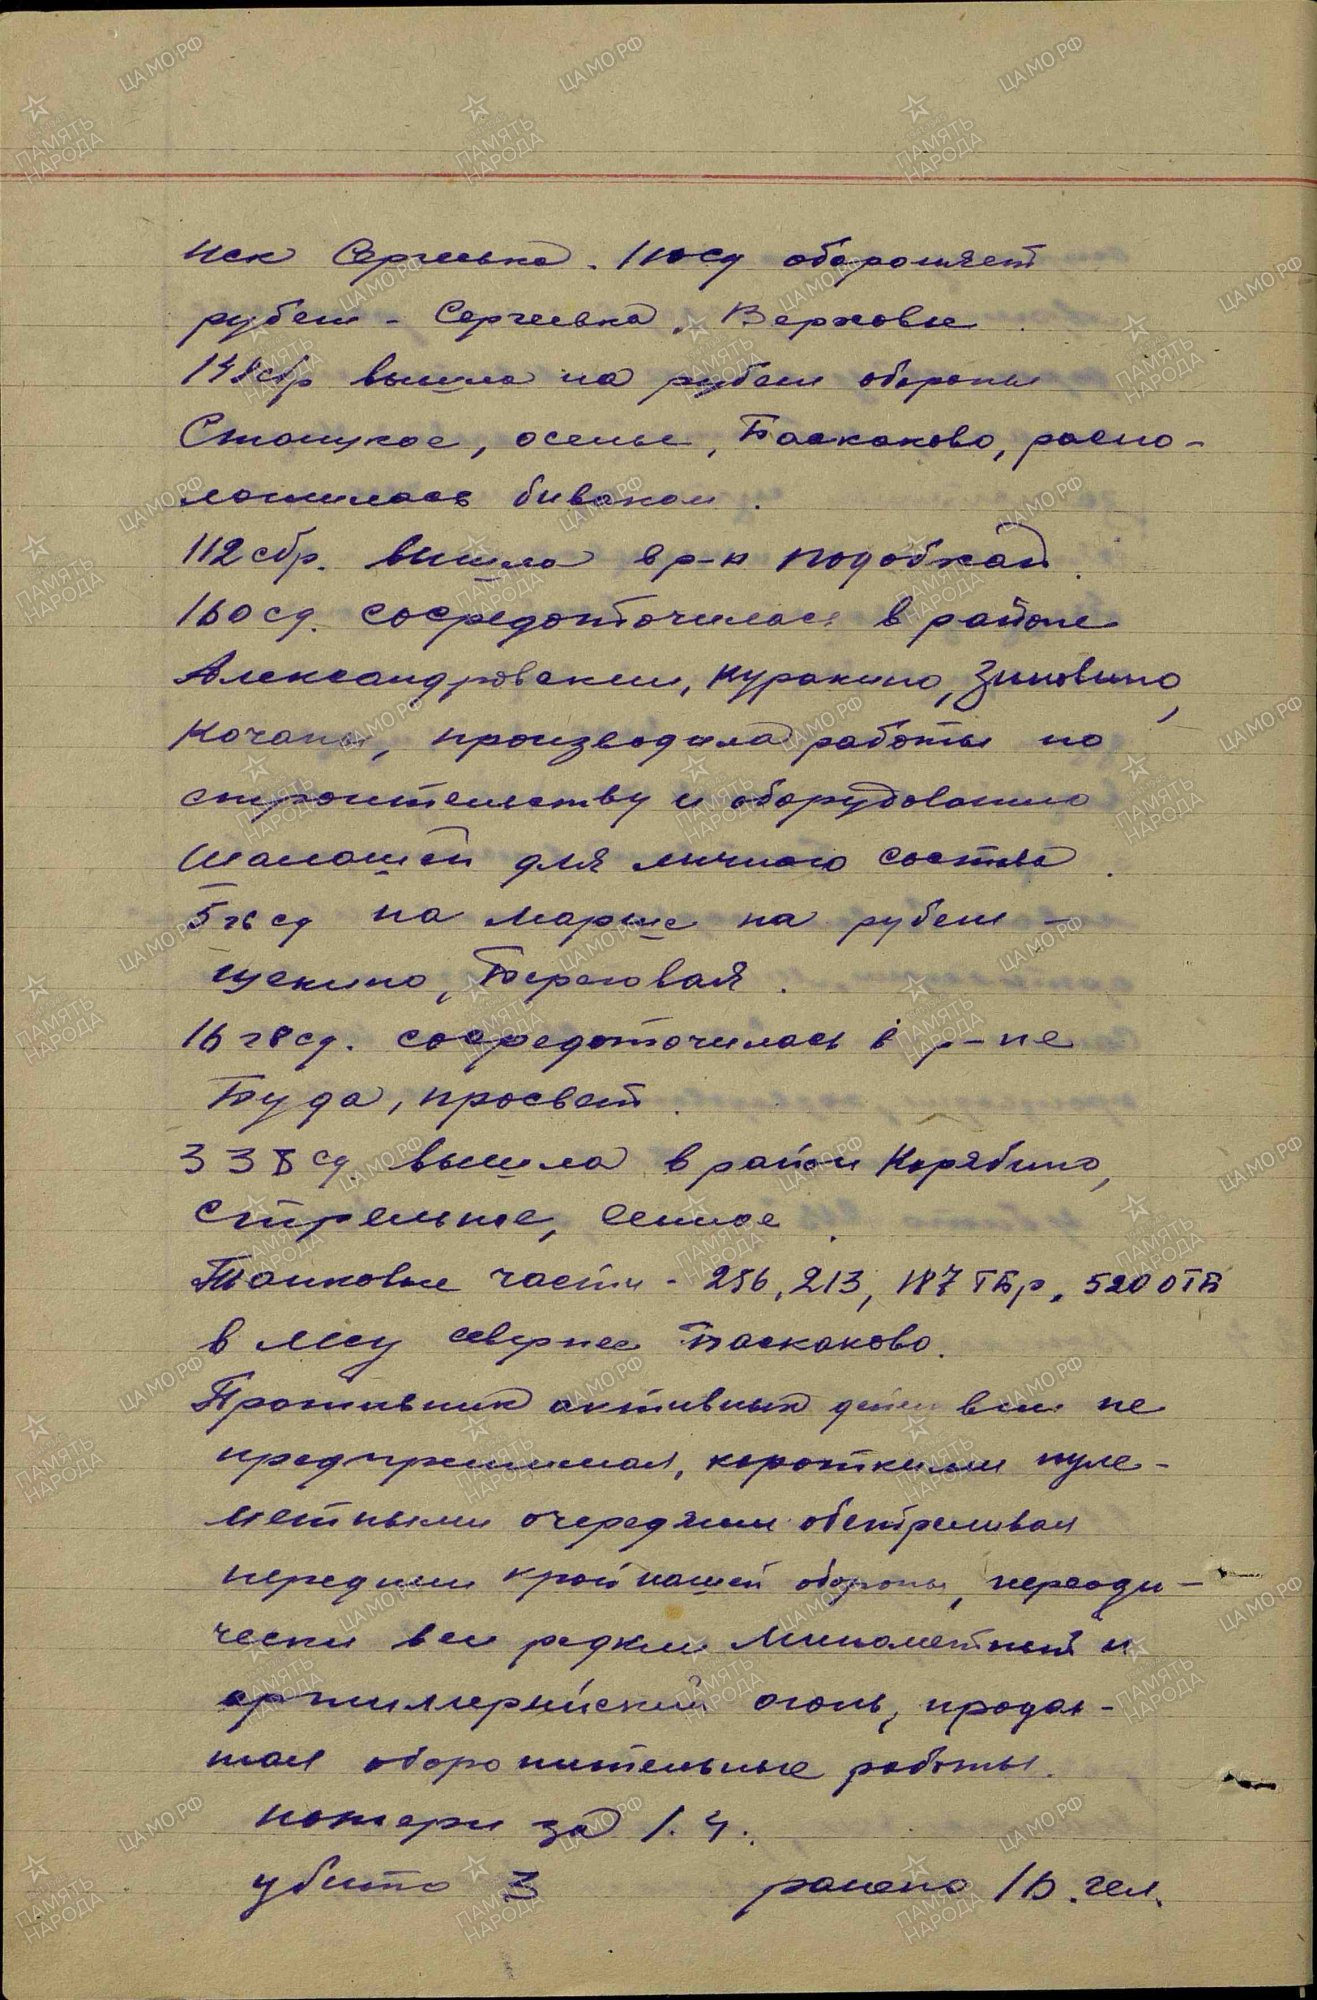 иск Сергеевка. 110сд обороняет
рубеж - Сергеевка, Верховье
148сбр вышла на рубеж обороны
Стощкое, осенье, Баскаково, распо-
ложилась биваком.
112 сбр. вышла в р-н подобкой.
160 сд. сосредоточилась в районе
Александровский, Куракино, Зиновино,
Кочаны, производила работы по
строительству и оборудованию
шалашей для личного состава.
5 гв сд на марше на рубеж -
щекино, Береговая.
16 гв сд. сосредоточилась в р-не
Буда, просвет.
338 сд вышла в район Корябино,
Стрельное, Сенное.
Танковые части - 256, 213, 187 ТБр, 520 ОТБ
в лесу севернее Баскаково.
Противник активных действий не
предпринимал, короткими пуле-
метными очередями обстреливал
передний край нашей обороны, переоди-
чески вел редкий минометный и
артиллерийский огонь, продол-
жал оборонительные работы.
потери за 1.4.
убито 3 ранено 16 чел.
ЦА МО РФ
ПАМЯТЬ НАРОДА